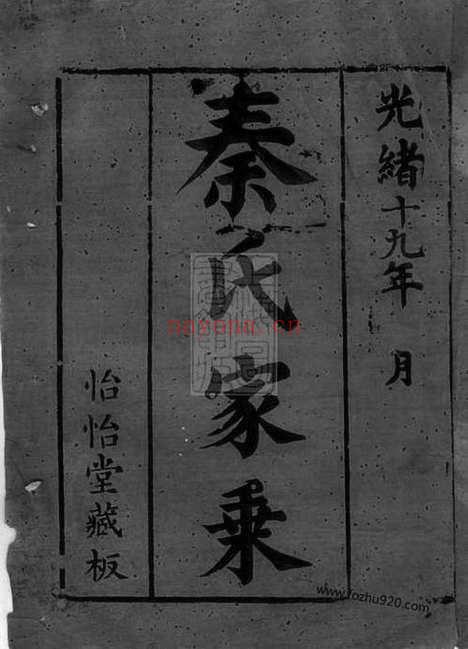 光緒十九年 月
秦氏家乗
怡怡堂藏板
nayona.cn
www.fozhu920.com